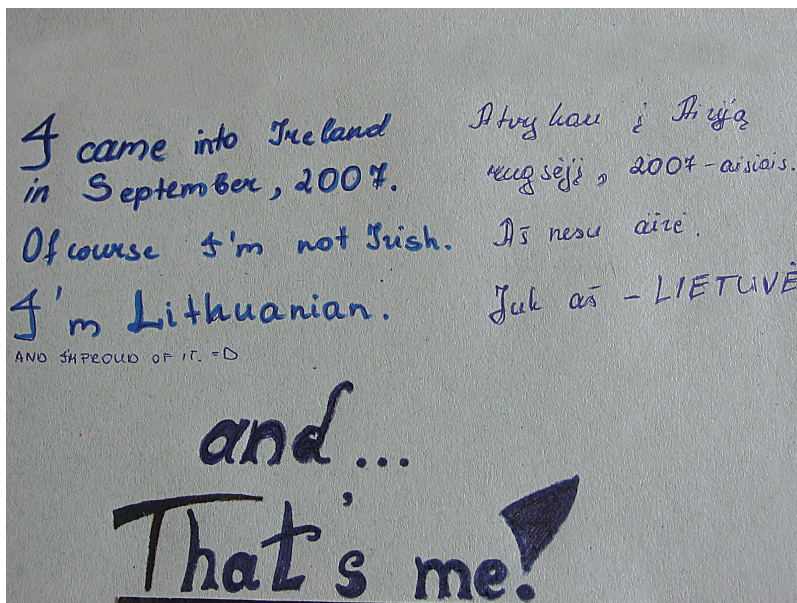 I came into Ireland
in September, 2007.
Of course I'm not Irish.
I'm Lithuanian.
AND I'M PROUD OF IT. =D
Atvykau į Airiją
rugsėjį, 2007-aisiais.
Aš nesu airė.
Juk aš - LIETUVĖ
and...
That's me!